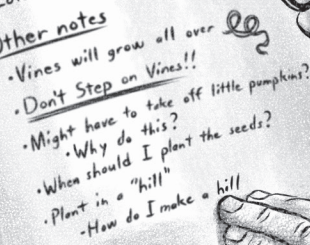 Other notes
· Vines will grow all over
· Don't Step on Vines!!
· Might have to take off little pumpkins?
· Why do this?
· When should I plant the seeds?
· Plant in a "hill"
- How do I make a hill